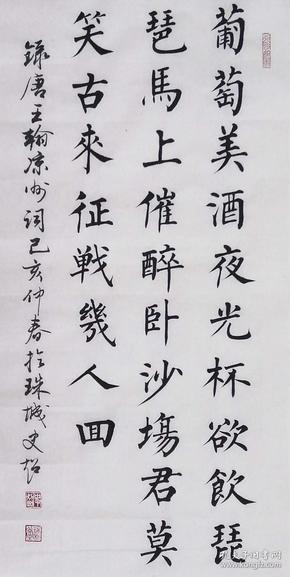 葡萄美酒夜光杯欲飲琵
琶馬上催醉卧沙塲君莫
笑古來征戰幾人回
録唐王翰凉州詞己亥仲春於珠城史超